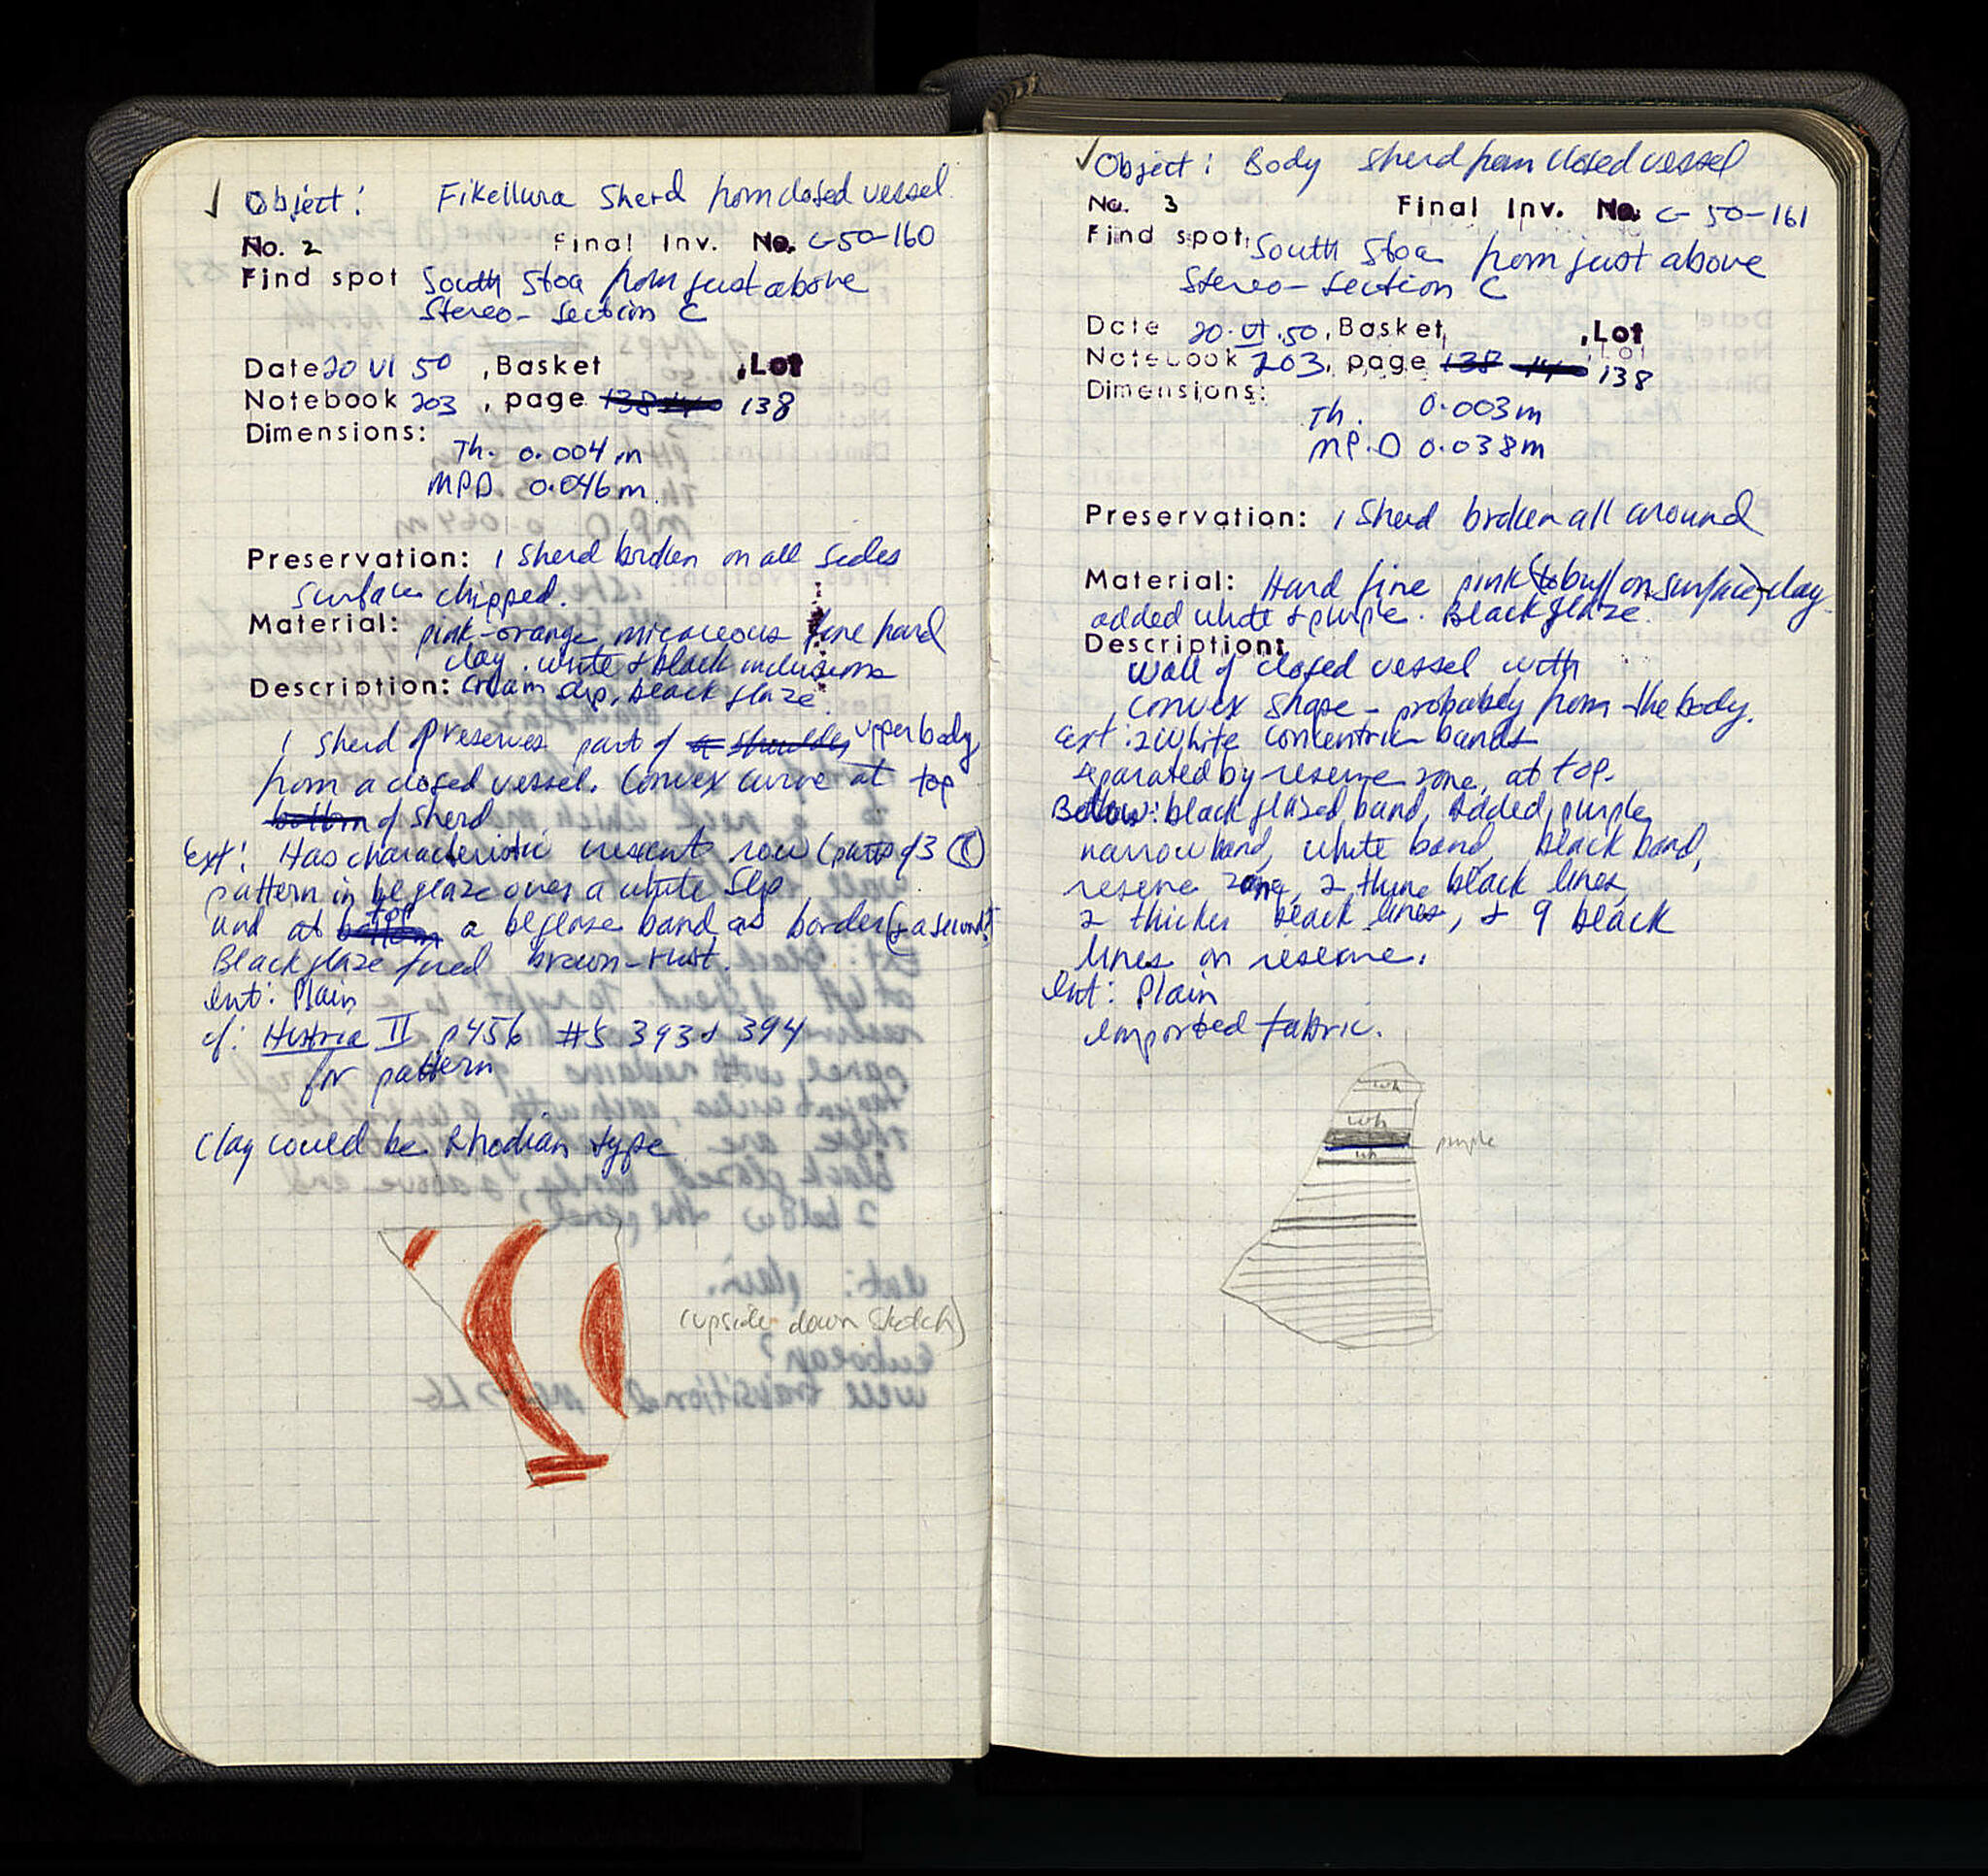 ✓ Object: Fikellura Sherd from closed vessel
No. 2 Final Inv. No. C-50-160
Find spot South Stoa from just above
Stereo- Section C
Date 20 VI 50 , Basket , Lot
Notebook 203 , page 138 140 138
Dimensions:
Th. 0.004 m
MPD 0.046 m.
Preservation: 1 Sherd broken on all sides
surface chipped.
Material: pink-orange micaceous fine hard
clay. white & black inclusions
Description: cream slip, black glaze.
1 sherd preserves part of a shoulder upper body,
from a closed vessel. Convex curve at top
bottom of sherd
Ext: Has characteristic crescent row (parts of 3
pattern in bl glaze over a white slip
and at bottom top a bl glaze band as border (& a second?)
Black glaze fired brown-rust.
Int: Plain
cf: Histria II p 456 #s 393 & 394
for pattern
Clay could be Rhodian type
(upside down sketch)
✓ Object: Body sherd from closed vessel
No. 3 Final Inv. No. C-50-161
Find spot: South Stoa from just above
Stereo- Section C
Date 20.VI.50, Basket, , Lot
Notebook 203, page 138 140 138
Dimensions:
Th. 0.003 m
MP.D 0.038 m
Preservation: 1 Sherd broken all around
Material: Hard fine pink (to buff on surface) clay
added white & purple. Black glaze.
Description:
Wall of closed vessel with
convex shape - probably from the body.
Ext: 2 white concentric bands
separated by reserve zone, at top.
Below: black glazed band, added purple
narrow band, white band, black band,
reserve zone, 2 thine black lines,
2 thicker black lines, & 9 black
lines on reserve.
Int: Plain
Imported fabric.
wh
wh
purple
wh